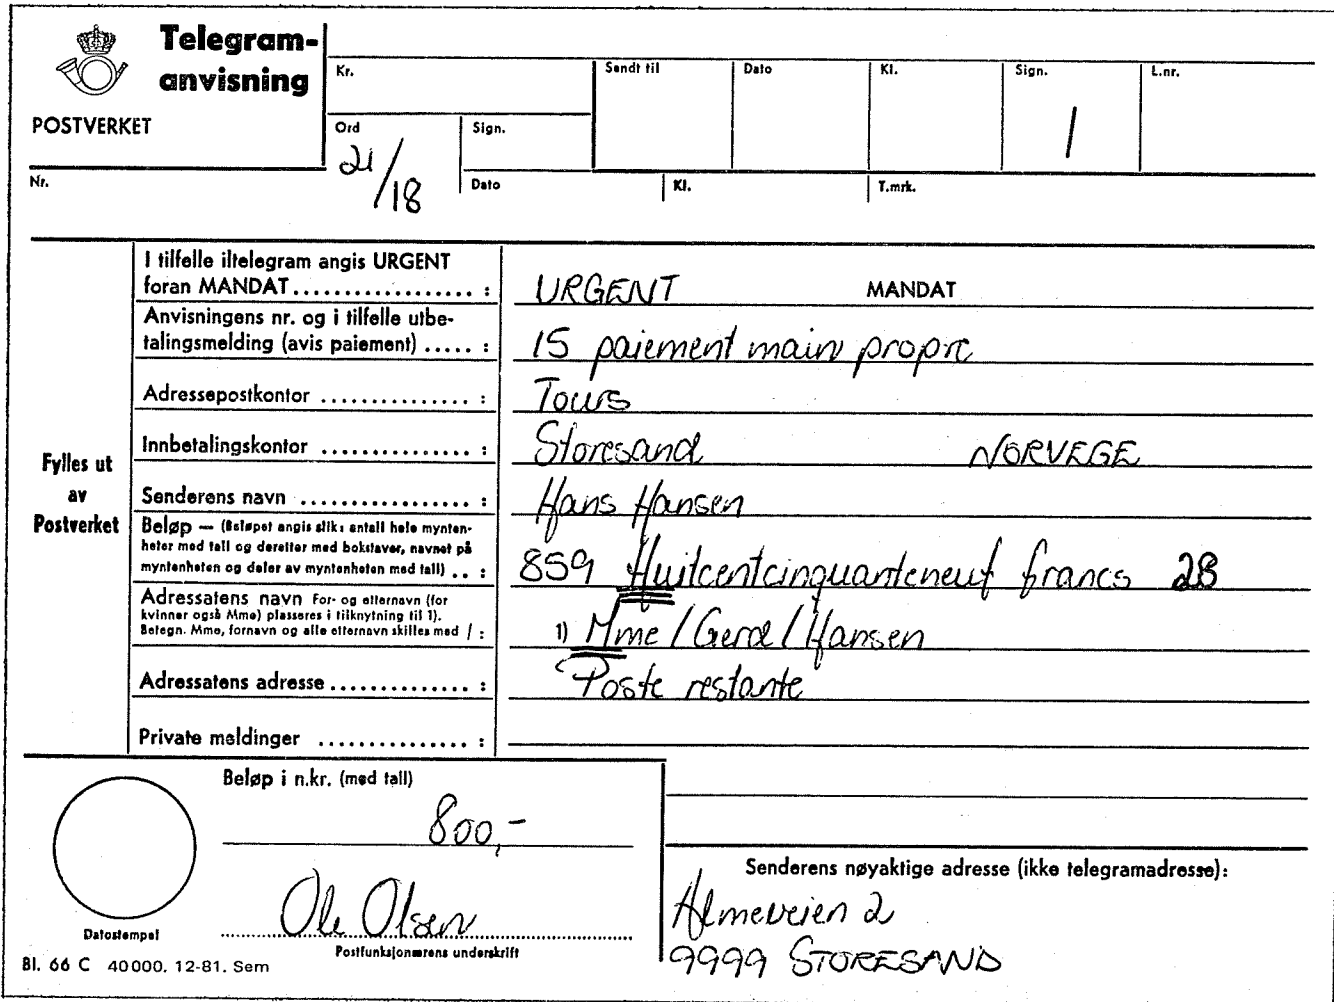 Telegram-
anvisning
POSTVERKET
Kr.
Sendt til
Dato
Kl.
Sign.
L.nr.
/
Ord
21/18
Sign.
Nr.
Dato
Kl.
T.mrk.
Fylles ut
av
Postverket
I tilfelle iltelegram angis URGENT
foran MANDAT .................. :
URGENT MANDAT
Anvisningens nr. og i tilfelle utbe-
talingsmelding (avis paiement) ..... :
15 paiement main propre
Adressepostkontor ............... :
Tours
Innbetalingskontor ............... :
Storesand NORVEGE
Senderens navn ................ :
Hans Hansen
Beløp — (Beløpet angis slik: antall hele mynten-
heter med tall og deretter med bokstaver, navnet på
myntenheten og deler av myntenheten med tall) .. :
859 Huitcentcinquanteneuf francs 28
Adressatens navn For- og etternavn (for
kvinner også Mme) plasseres i tilknytning til 1).
Betegn. Mme, fornavn og alle etternavn skilles med / :
1) Mme / Gerd / Hansen
Adressatens adresse .............. :
Poste restante
Private meldinger ............... :
Beløp i n.kr. (med tall)
800,-
Ole Olsen
Datostempel
Postfunksjonærens underskrift
Bl. 66 C 40000. 12-81. Sem
Senderens nøyaktige adresse (ikke telegramadresse):
Almeveien 2
9999 STORESAND